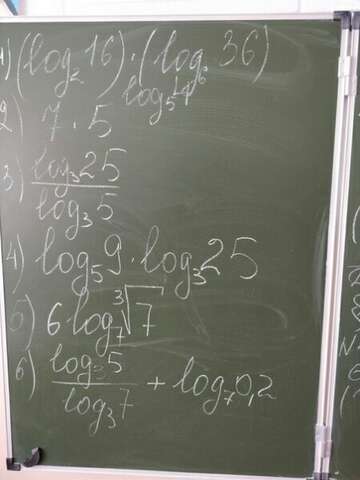 1) (log₂ 16) · (log₆ 36)
2) 7 · 5^(log₅ 4)
3) log₃ 25 / log₃ 5
4) log₅ 9 · log₃ 25
5) 6 log₇ ³√7
6) log₃ 5 / log₃ 7 + log₇ 0,2